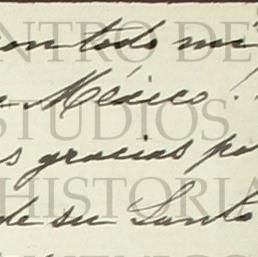 con todo mi
México!
s gracias po
de su Santo
CENTRO DE
ESTUDIOS
HISTORIA